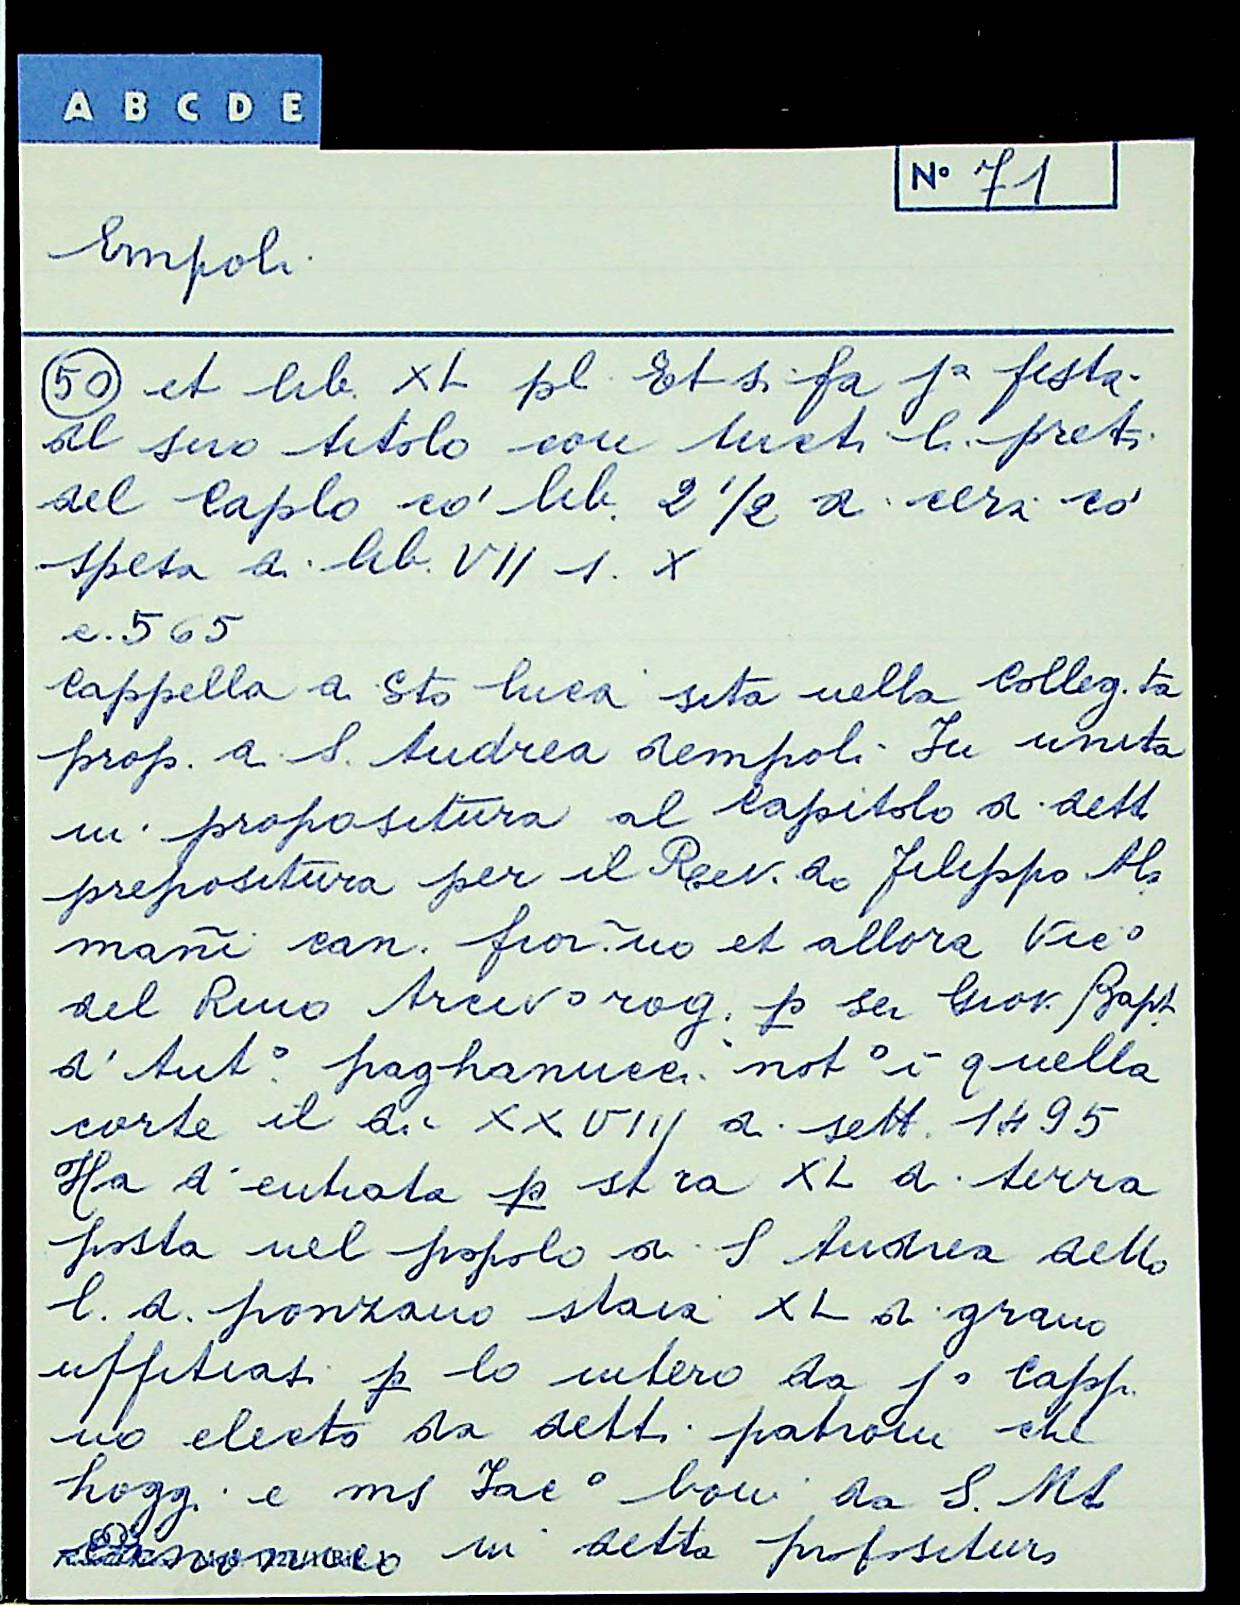 A B C D E
Nº 71
Empoli.
50 et lib. XL pl. Et si fa jª festa
al suo titolo con tucti li preti
del Caplo co' lib. 2 1/2 di cera co'
spesa di lib. VII s. X
c. 565
Cappella di Sto Luca sita nella Colleg.ta
prop. di S. Andrea dempoli. Fu unita
in propositura al Capitolo di dett
prepositura per il Rev.do Filippo Ala
mañi can. fior.no et allora Vicº
del Rmo Arcivº rog. p ser Giov. Bapt.
d'Antº. paghanucci notº ī quella
corte il dì XXVIII di sett. 1495
Ha d'entrata p st ra XL di terra
posta nel popolo di S Andrea detto
l. d. ponzano staia XL di grano
uffitiasi p lo intero da jº Capp.
no electo da detti patroni che
hoggi e ms Jacº boni da S. Mt
Canonico in detta propositura